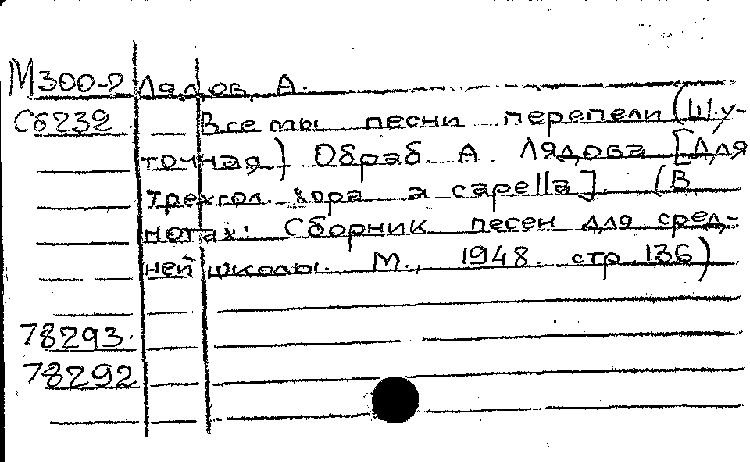 М300-2 Лядов, А.
С6232 Все мы песни перепели (Шу-
точная) Обраб. А. Лядова [Для
трехгол. хора a capella]. (В
нотах: Сборник песен для сред-
ней школы. М., 1948. стр 136)
78293.
78292